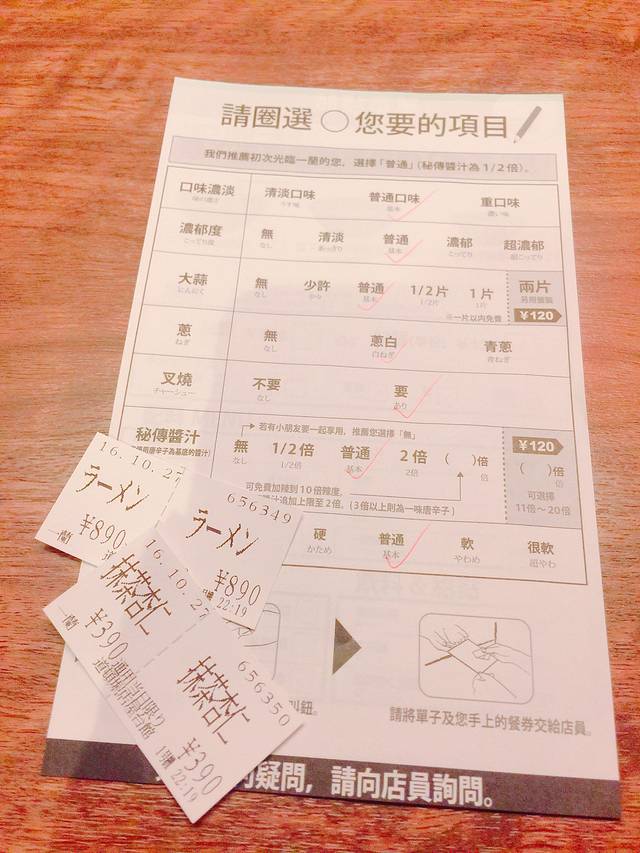 請圈選 ○ 您要的項目
我們推薦初次光臨一蘭的您，選擇「普通」(秘傳醬汁為 1/2 倍)。
口味濃淡 清淡口味 普通口味 重口味
味の濃さ うす味 基本 濃い味
濃郁度 無 清淡 普通 濃郁 超濃郁
こってり度 なし あっさり 基本 こってり 超こってり
大蒜 無 少許 普通 1/2片 1片 兩片
にんにく なし 少々 基本 1/2片 1片
※一片以內免費 ¥120
蔥 無 蔥白 青蔥
ねぎ なし 白ねぎ 青ねぎ
叉燒 不要 要
チャーシュー なし あり
若有小朋友要一起享用，推薦您選擇「無」
秘傳醬汁 無 1/2倍 普通 2倍 ( )倍 ¥120 ( )倍
なし 1/2倍 基本 2倍 倍 倍
可免費加辣到10倍辣度。
(3倍以上則為一味唐辛子)
可選擇
11倍～20倍
硬 普通 軟 很軟
かため 基本 やわめ 超やわ
請將單子及您手上的餐券交給店員。
疑問，請向店員詢問。
16.10.27
ラーメン
¥890
一蘭
656349
ラーメン
¥890
22:19
16.10.27
抹茶杏仁
¥390
一蘭
適用当日限り
656350
抹茶杏仁
¥390
22:19